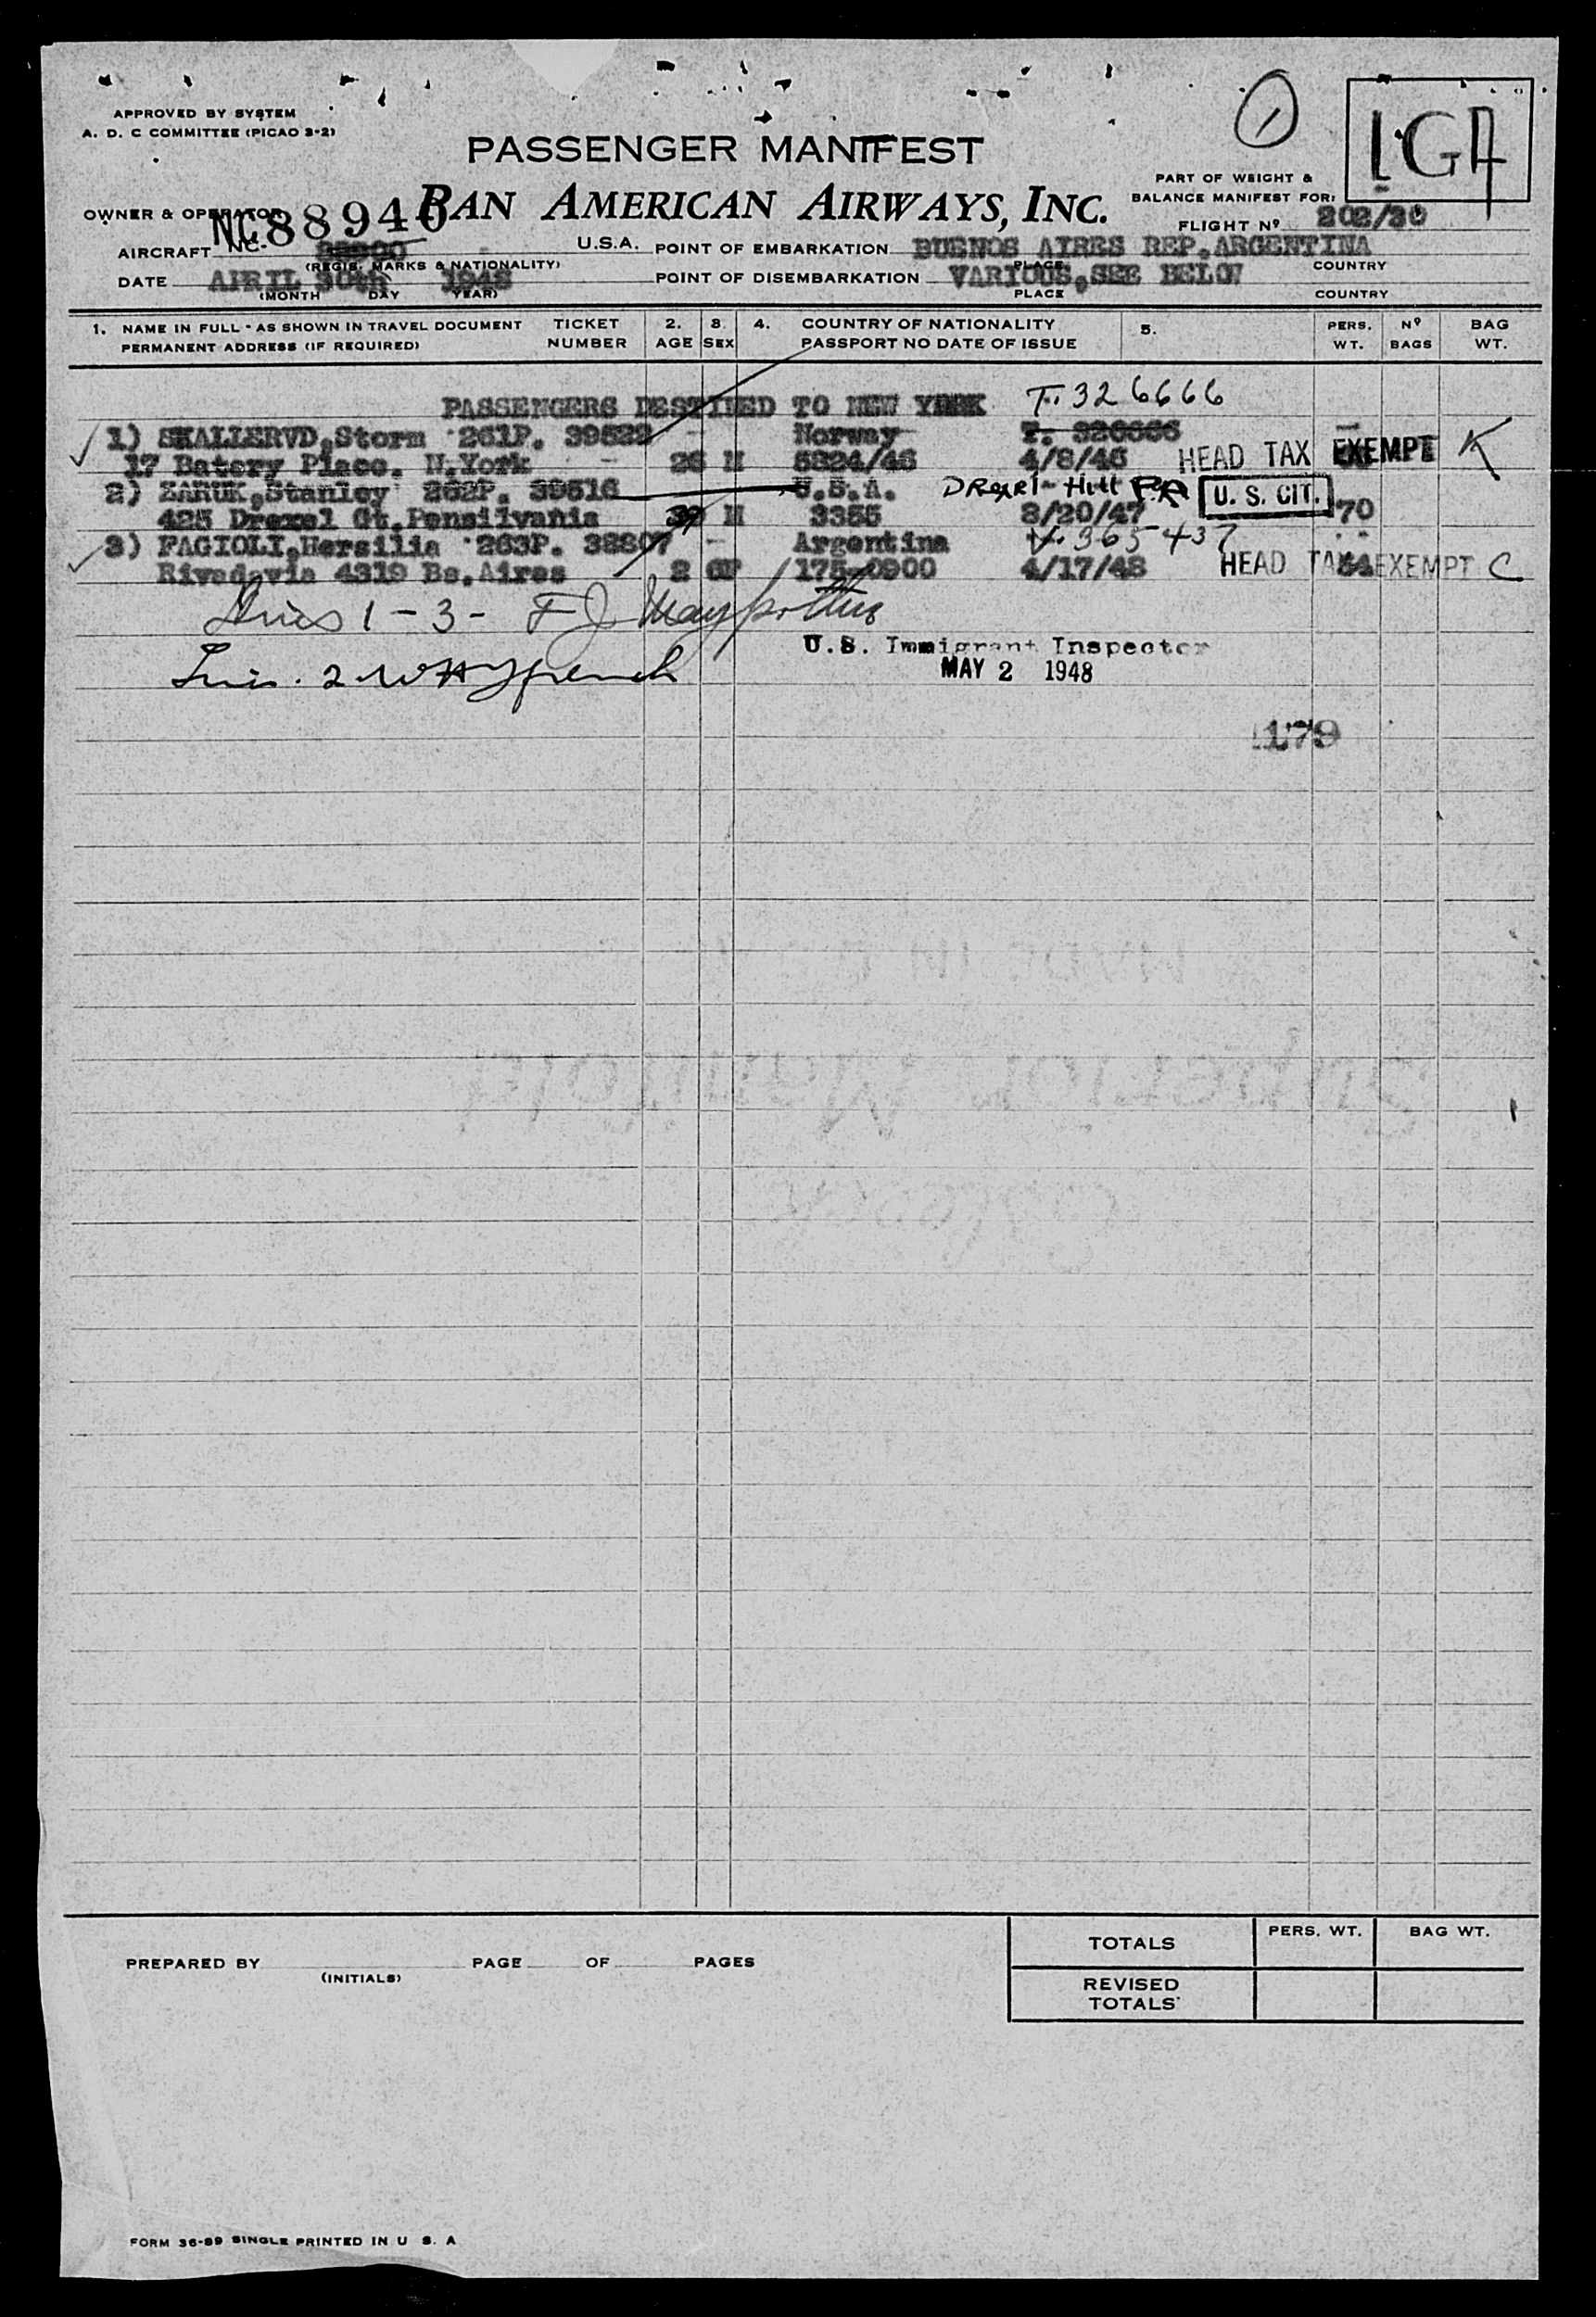 APPROVED BY SYSTEM
A. D. C COMMITTEE (PICAO 3-2)
PASSENGER MANIFEST
1
LGA
PAN AMERICAN AIRWAYS, INC.
PART OF WEIGHT &
BALANCE MANIFEST FOR:
OWNER & OPERATOR
NC88940
FLIGHT Nº 202/30
AIRCRAFT NC.
(REGIS. MARKS & NATIONALITY)
U.S.A.
POINT OF EMBARKATION BUENOS AIRES REP.ARGENTINA
PLACE COUNTRY
DATE APRIL 30th 1948
(MONTH DAY YEAR)
POINT OF DISEMBARKATION VARIOUS,SEE BELOW
PLACE COUNTRY
1. NAME IN FULL - AS SHOWN IN TRAVEL DOCUMENT TICKET 2. 3. 4. COUNTRY OF NATIONALITY 5. PERS. Nº BAG
PERMANENT ADDRESS (IF REQUIRED) NUMBER AGE SEX PASSPORT NO DATE OF ISSUE WT. BAGS WT.
PASSENGERS DESTINED TO NEW YORK T. 326666
1) SKALLERVD,Storm 261P. 39522 - Norway T. 326666
17 Batery Place. N.York - 26 M 5824/46 4/8/46 HEAD TAX EXEMPT K
2) ZARUK,Stanley 262P. 39516 U.S.A. Drexel Hill PA U. S. CIT.
425 Drexel Gt.Pensilvania 39 M 3355 8/20/47 70
3) FAGIOLI,Hersilia 263P. 38807 - Argentina V. 365437
Rivadavia 4319 Bs.Aires 2 6F 175-0900 4/17/48 HEAD TAX EXEMPT C
1 - 3 - F J
U.S. Immigrant Inspector
2
MAY 2 1948
179
PREPARED BY
(INITIALS)
PAGE OF PAGES
TOTALS PERS. WT. BAG WT.
REVISED
TOTALS
FORM 36-89 SINGLE PRINTED IN U S. A